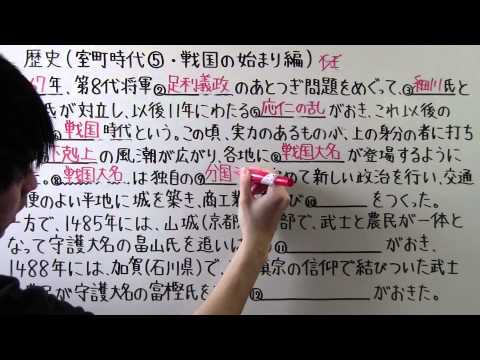 歴史(室町時代⑤・戦国の始まり編)
67年、第8代将軍②足利義政のあとつぎ問題をめぐって、③細川氏と
氏が対立し、以後11年にわたる⑤応仁の乱がおき、これ以後の
戦国時代という。この頃、実力のあるものが、上の身分の者に打ち
下剋上の風潮が広がり、各地に⑧戦国大名が登場するように
た。⑧戦国大名は独自の⑨分国 めて新しい政治を行い、交通
便のよい平地に城を築き、商工業 び⑩をつくった。
方で、1485年には、山城(京都 部で、武士と農民が一体と
なって守護大名の畠山氏を追い ⑪がおき、
1488年には、加賀(石川県)で、 宗の信仰で結びついた武士
民が守護大名の富樫氏を ⑫がおきた。